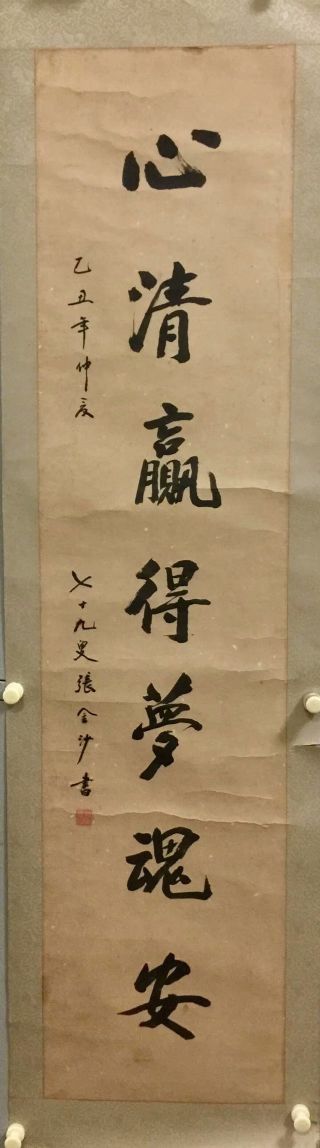 心清贏得夢魂安
乙丑年仲夏
七十九叟張金沙書